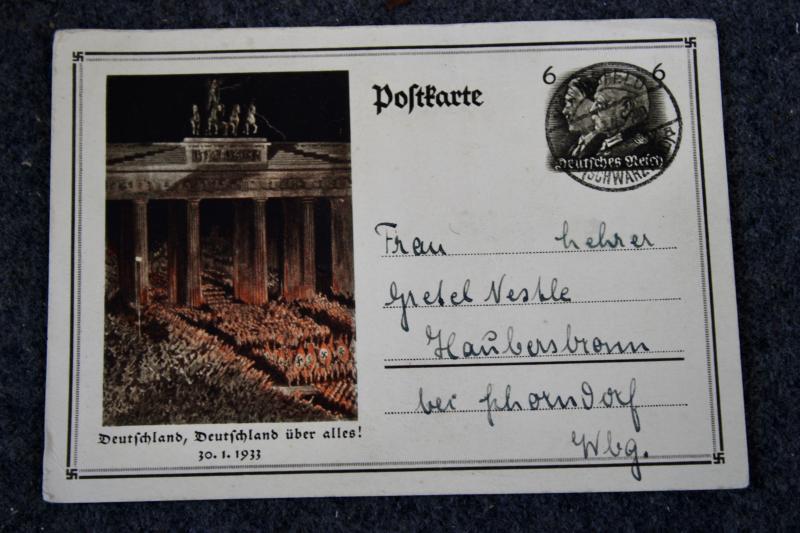 Postkarte
6 6
Deutsches Reich
(SCHWARZ
Frau Lehrer
Gretel Nestle
Haubersbronn
bei Schorndorf
Wbg.
Deutschland, Deutschland über alles!
30. 1. 1933